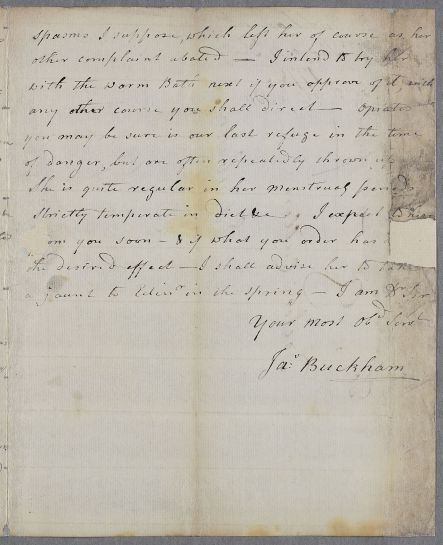 spasms I suppose, which left her of course as her
other complaint abated — I intend to try her
with the warm Bath next if you approve of it, with
any other course you shall direct — Opiates
you may be sure is our last refuge in the time
of danger, but are often repeatedly thrown up
She is quite regular in her menstrual periods
Strictly temperate in diet &c I expect to hear
om you soon — & if what you order has
the desired effect — I shall advise her to take
a jaunt to Edinr in the spring — I am Dr Sir
Your most Obd Servt
Jas: Buckham